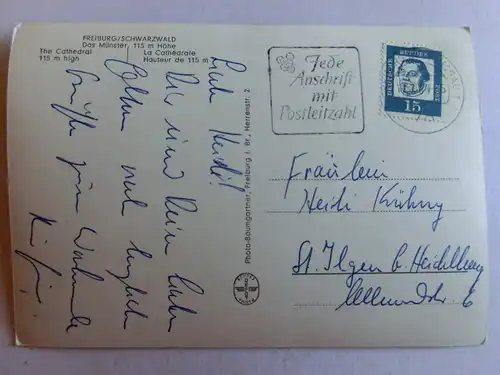 FREIBURG/SCHWARZWALD
Das Münster 115 m Höhe
The Cathedral La Cathédrale
115 m high Hauteur de 115 m
Liebe Heidi!
Dir und Deinen lieben
Eltern viel herzlich
Grüße zum
Photo-Baumgartner, Freiburg i. Br., Herrenstr. 2
Jede
Anschrift
mit
Postleitzahl
DEUTSCHE BUNDESPOST
15
Fräulein
Heidi
St. Ilgen b. Heidelberg
6